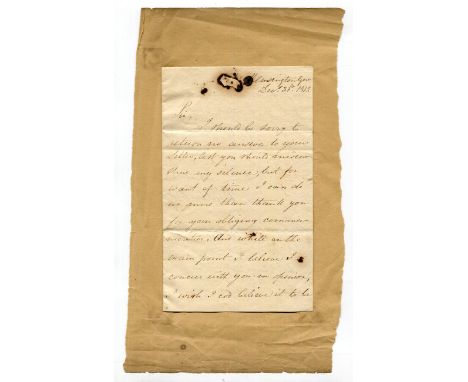 Kensington Gore
Decr 28th
Sir,
I should be sorry to
return no answer to your
letter, lest you should miscon-
strue my silence; but for
want of time I can do
no more than thank you
for your obliging commu-
nication. And while on the
main point I believe I
concur with you in opinion,
I wish I cod believe it to be